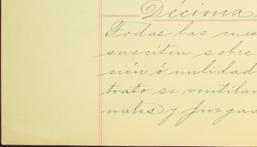 Décima
Todas las cues
susciten sobre
sión ó nulidad
trato se ventila
nales y juzga